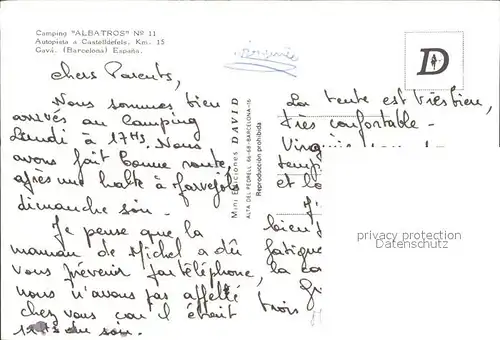 Camping "ALBATROS" Nº 11
Autopista a Castelldefels, Km. 15
Gavá. (Barcelona) España.
Virginie
D
Chers Parents,
Nous sommes bien
arrivés au Camping
Lundi à 17Hs. Nous
avons fait bonne route
après une halte à Marvejols
dimanche soir.
Je pense que la
maman de Michel a dû
vous prévenir par téléphone,
nous n'avons pas appellé
chez vous car il était
du soir.
Mini Ediciones DAVID
ALTA DEL PEDRELL 66-68-BARCELONA-16
Reproducción prohibida
La tente est très bien,
très confortable -
Virginie
temp
et lo
bien
fatigue
la ca
trois
privacy protection
Datenschutz